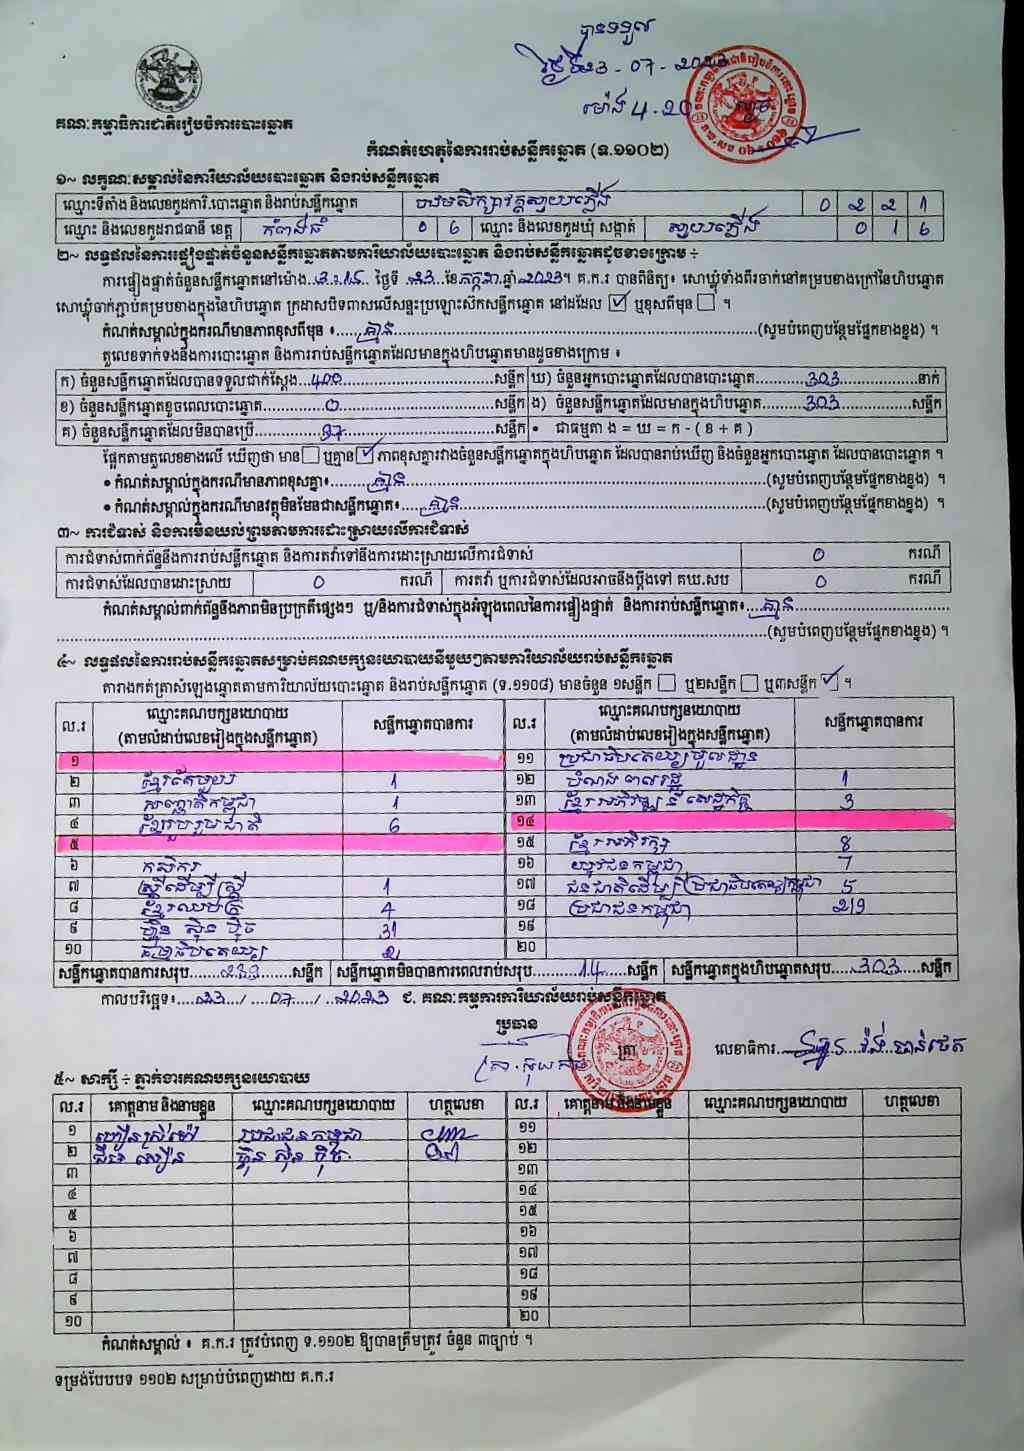 បានទទួល
ថ្ងៃទី23-07-2023
ម៉ោង 4-20
គណៈកម្មាធិការជាតិរៀបចំការបោះឆ្នោត
កំណត់ហេតុនៃការរាប់សន្លឹកឆ្នោត (ទ.១១០២)
១~ លក្ខណៈសម្គាល់នៃការិយាល័យបោះឆ្នោត និងរាប់សន្លឹកឆ្នោត
ឈ្មោះទីតាំង និងលេខកូដការិ.បោះឆ្នោត និងរាប់សន្លឹកឆ្នោត 0 2 2 1
ឈ្មោះ និងលេខកូដរាជធានី ខេត្ត កំពង់ធំ 0 6 ឈ្មោះ និងលេខកូដឃុំ សង្កាត់ ស្វាយភ្លើង 0 1 6
២~ លទ្ធផលនៃការផ្ទៀងផ្ទាត់ចំនួនសន្លឹកឆ្នោតតាមការិយាល័យបោះឆ្នោត និងរាប់សន្លឹកឆ្នោតដូចខាងក្រោម ÷
ការផ្ទៀងផ្ទាត់ចំនួនសន្លឹកឆ្នោតនៅម៉ោង 3:15 ថ្ងៃទី 23 ខែ កក្កដា ឆ្នាំ 2023។ គ.ក.រ បានពិនិត្យ៖ សោឃ្លុំទាំងពីរចាក់នៅគម្របខាងក្រៅនៃហិបឆ្នោត
សោឃ្លុំចាក់ភ្ជាប់គម្របខាងក្នុងនៃហិបឆ្នោត ក្រដាសបិទពាសលើសន្ទះប្រឡោះស៊កសន្លឹកឆ្នោត នៅដដែល ☑ ឬខុសពីមុន ☐ ។
កំណត់សម្គាល់ក្នុងករណីមានភាពខុសពីមុន ៖ គ្មាន (សូមបំពេញបន្ថែមផ្នែកខាងខ្នង) ។
តួលេខទាក់ទងនឹងការបោះឆ្នោត និងការរាប់សន្លឹកឆ្នោតដែលមានក្នុងហិបឆ្នោតមានដូចខាងក្រោម ៖
ក) ចំនួនសន្លឹកឆ្នោតដែលបានទទួលជាក់ស្តែង 400 សន្លឹក ឃ) ចំនួនអ្នកបោះឆ្នោតដែលបានបោះឆ្នោត 303 នាក់
ខ) ចំនួនសន្លឹកឆ្នោតខូចពេលបោះឆ្នោត 0 សន្លឹក ង) ចំនួនសន្លឹកឆ្នោតដែលមានក្នុងហិបឆ្នោត 303 សន្លឹក
គ) ចំនួនសន្លឹកឆ្នោតដែលមិនបានប្រើ 97 សន្លឹក • ជាធម្មតា ង = ឃ = ក - ( ខ + គ )
ផ្អែកតាមតួលេខខាងលើ ឃើញថា មាន ☐ ឬគ្មាន ☑ ភាពខុសគ្នារវាងចំនួនសន្លឹកឆ្នោតក្នុងហិបឆ្នោត ដែលបានរាប់ឃើញ និងចំនួនអ្នកបោះឆ្នោត ដែលបានបោះឆ្នោត ។
• កំណត់សម្គាល់ក្នុងករណីមានភាពខុសគ្នា៖ គ្មាន (សូមបំពេញបន្ថែមផ្នែកខាងខ្នង) ។
• កំណត់សម្គាល់ក្នុងករណីមានវត្ថុមិនមែនជាសន្លឹកឆ្នោត៖ គ្មាន (សូមបំពេញបន្ថែមផ្នែកខាងខ្នង) ។
៣~ ការជំទាស់ និងការមិនយល់ព្រមតាមការដោះស្រាយលើការជំទាស់
ការជំទាស់ពាក់ព័ន្ធនឹងការរាប់សន្លឹកឆ្នោត និងការតវ៉ាទៅនឹងការដោះស្រាយលើការជំទាស់ 0 ករណី
ការជំទាស់ដែលបានដោះស្រាយ 0 ករណី ការតវ៉ា ឬការជំទាស់ដែលអាចនឹងប្តឹងទៅ គឃ.សប 0 ករណី
កំណត់សម្គាល់ពាក់ព័ន្ធនឹងភាពមិនប្រក្រតីផ្សេងៗ ឬ/និងការជំទាស់ក្នុងអំឡុងពេលនៃការផ្ទៀងផ្ទាត់ និងការរាប់សន្លឹកឆ្នោត៖ គ្មាន
(សូមបំពេញបន្ថែមផ្នែកខាងខ្នង) ។
៤~ លទ្ធផលនៃការរាប់សន្លឹកឆ្នោតសម្រាប់គណបក្សនយោបាយនីមួយៗតាមការិយាល័យរាប់សន្លឹកឆ្នោត
តារាងកត់ត្រាសំឡេងឆ្នោតតាមការិយាល័យបោះឆ្នោត និងរាប់សន្លឹកឆ្នោត (ទ.១១០៨) មានចំនួន ១សន្លឹក ☐ ឬ២សន្លឹក ☐ ឬ៣សន្លឹក ☑ ។
ល.រ ឈ្មោះគណបក្សនយោបាយ (តាមលំដាប់លេខរៀងក្នុងសន្លឹកឆ្នោត) សន្លឹកឆ្នោតបានការ ល.រ ឈ្មោះគណបក្សនយោបាយ (តាមលំដាប់លេខរៀងក្នុងសន្លឹកឆ្នោត) សន្លឹកឆ្នោតបានការ
១ ១១ ប្រជាធិបតេយ្យមូលដ្ឋាន
២ ខ្មែរតែមួយ 1 ១២ បំណងពលរដ្ឋ 1
៣ សញ្ជាតិកម្ពុជា 1 ១៣ ខ្មែរអភិវឌ្ឍន៍សេដ្ឋកិច្ច 3
៤ ខ្មែររួបរួមជាតិ 6 ១៤
៥ ១៥ ខ្មែរអភិរក្ស 8
៦ កសិករ ១៦ យុវជនកម្ពុជា 7
៧ ស្ត្រីដើម្បីស្ត្រី 1 ១៧ ជនជាតិដើមប្រជាធិបតេយ្យកម្ពុជា 5
៨ ខ្មែរឈប់ក្រ 4 ១៨ ប្រជាជនកម្ពុជា 219
៩ ហ៊្វុន ស៊ិន ប៉ិច 31 ១៩
១០ ធម្មាធិបតេយ្យ 2 ២០
សន្លឹកឆ្នោតបានការសរុប 289 សន្លឹក សន្លឹកឆ្នោតមិនបានការពេលរាប់សរុប 14 សន្លឹក សន្លឹកឆ្នោតក្នុងហិបឆ្នោតសរុប 303 សន្លឹក
កាលបរិច្ឆេទ៖ 23 / 07 / 2023 ជ. គណៈកម្មការការិយាល័យរាប់សន្លឹកឆ្នោត
ប្រធាន
ត្រា
លេខាធិការ
៥~ សាក្សី ÷ ភ្នាក់ងារគណបក្សនយោបាយ
ល.រ គោត្តនាម និងនាមខ្លួន ឈ្មោះគណបក្សនយោបាយ ហត្ថលេខា ល.រ គោត្តនាម និងនាមខ្លួន ឈ្មោះគណបក្សនយោបាយ ហត្ថលេខា
១ ប្រជាជនកម្ពុជា ១១
២ ហ៊្វុន ស៊ិន ប៉ិច ១២
៣ ១៣
៤ ១៤
៥ ១៥
៦ ១៦
៧ ១៧
៨ ១៨
៩ ១៩
១០ ២០
កំណត់សម្គាល់ ៖ គ.ក.រ ត្រូវបំពេញ ទ.១១០២ ឱ្យបានត្រឹមត្រូវ ចំនួន ៣ច្បាប់ ។
ទម្រង់បែបបទ ១១០២ សម្រាប់បំពេញដោយ គ.ក.រ